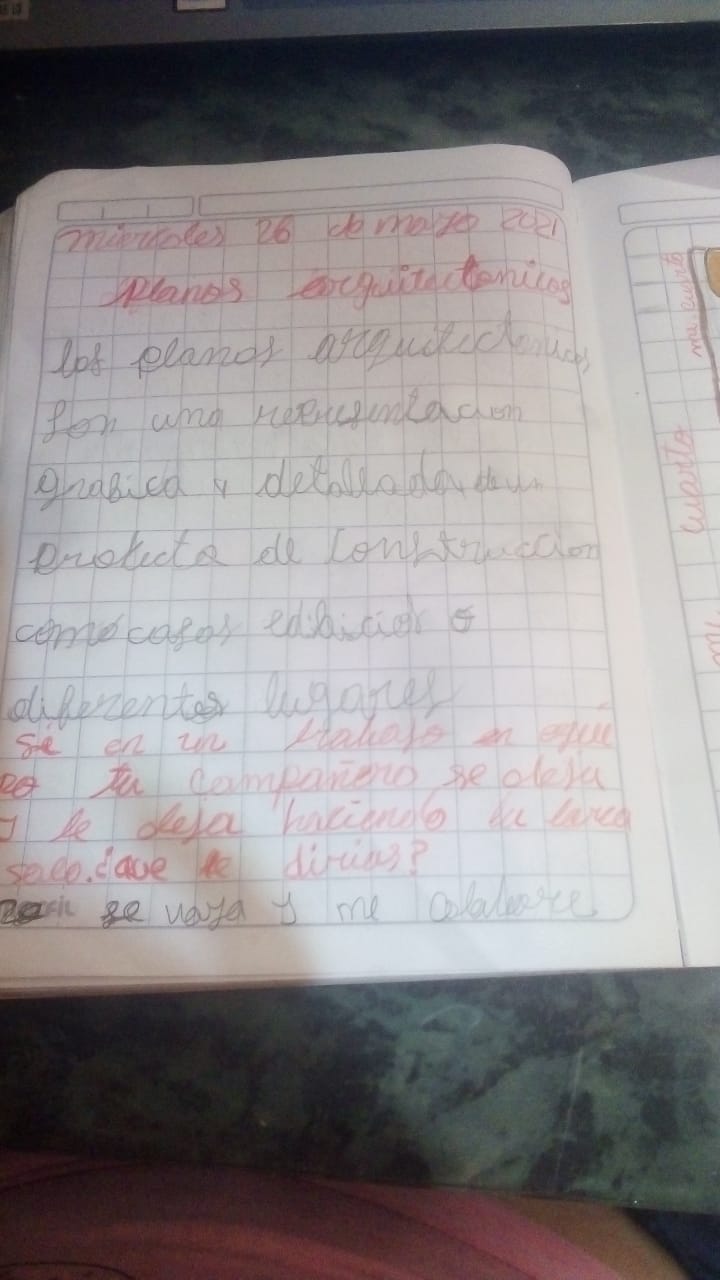 miercoles 26 de mayo 2021
Planos arquitectonicos
los planos arquitectonicos
son una representacion
grafica y detallada de un
protecto de construccion
como casas edificios o
diferentes lugares
Si en un trabajo en equi
po tu compañero se aleja
y te deja haciendo la tarea
solo. ¿que le dirias?
se vaya y me colabore.
mi cuarto
cuarto
mi